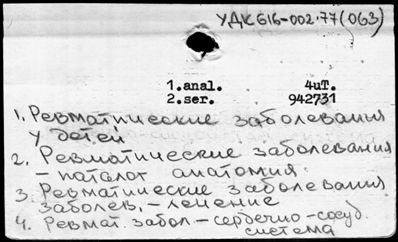 УДК 616-002.77(063)
1.anal. 4uT.
2.ser. 942731
1. Ревматические заболевания
у детей
2. Ревматические заболевания
- патолог анатомия
3. Ревматические заболевания
заболев. - лечение
4. Ревмат. забол - сердечно-сосуд.
система